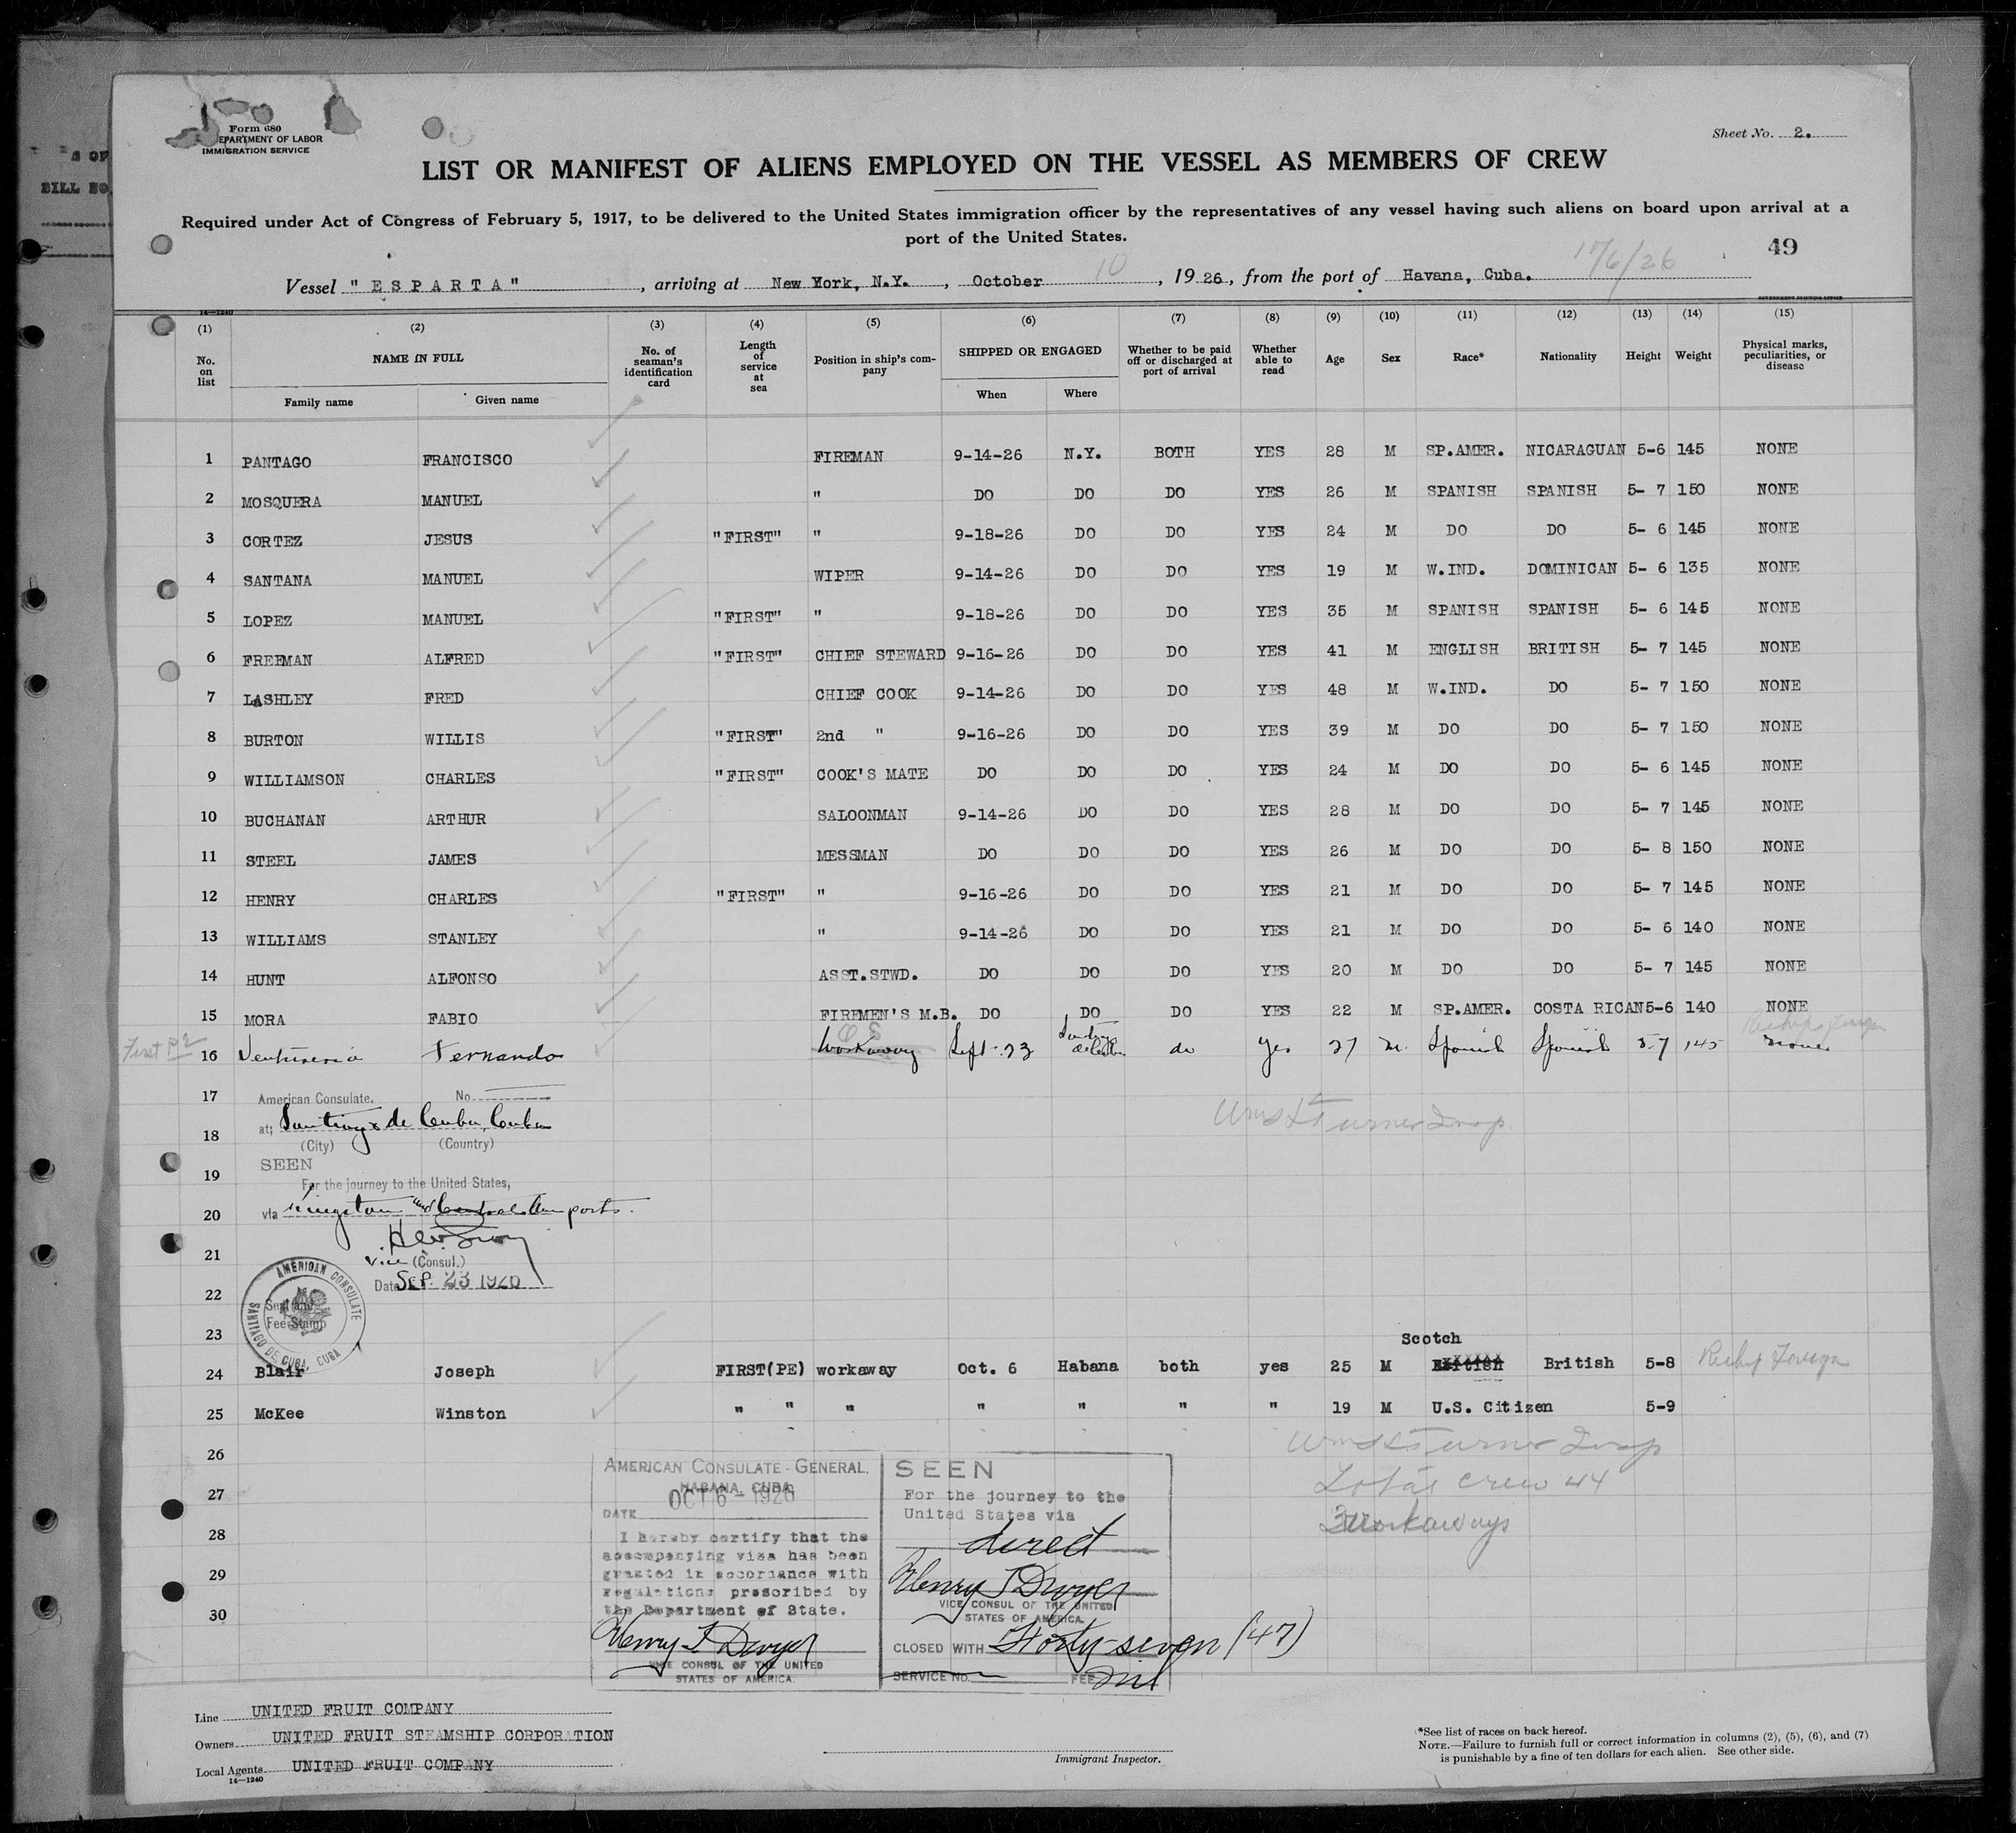 Form 680
EPARTMENT OF LABOR
IMMIGRATION SERVICE
Sheet No. 2.
LIST OR MANIFEST OF ALIENS EMPLOYED ON THE VESSEL AS MEMBERS OF CREW
Required under Act of Congress of February 5, 1917, to be delivered to the United States immigration officer by the representatives of any vessel having such aliens on board upon arrival at a
port of the United States.
49
17/6/26
Vessel "ESPARTA", arriving at New York, N.Y., October 10, 1926, from the port of Havana, Cuba.
14—1240
(1) (2) (3) (4) (5) (6) (7) (8) (9) (10) (11) (12) (13) (14) (15)
No. on list NAME IN FULL No. of seaman's identification card Length of service at sea Position in ship's company SHIPPED OR ENGAGED Whether to be paid off or discharged at port of arrival Whether able to read Age Sex Race* Nationality Height Weight Physical marks, peculiarities, or disease
Family name Given name When Where
1 PANTAGO FRANCISCO FIREMAN 9-14-26 N.Y. BOTH YES 28 M SP.AMER. NICARAGUAN 5-6 145 NONE
2 MOSQUERA MANUEL " DO DO DO YES 26 M SPANISH SPANISH 5- 7 150 NONE
3 CORTEZ JESUS "FIRST" " 9-18-26 DO DO YES 24 M DO DO 5- 6 145 NONE
4 SANTANA MANUEL WIPER 9-14-26 DO DO YES 19 M W.IND. DOMINICAN 5- 6 135 NONE
5 LOPEZ MANUEL "FIRST" " 9-18-26 DO DO YES 35 M SPANISH SPANISH 5- 6 145 NONE
6 FREEMAN ALFRED "FIRST" CHIEF STEWARD 9-16-26 DO DO YES 41 M ENGLISH BRITISH 5- 7 145 NONE
7 LASHLEY FRED CHIEF COOK 9-14-26 DO DO YES 48 M W.IND. DO 5- 7 150 NONE
8 BURTON WILLIS "FIRST" 2nd " 9-16-26 DO DO YES 39 M DO DO 5- 7 150 NONE
9 WILLIAMSON CHARLES "FIRST" COOK'S MATE DO DO DO YES 24 M DO DO 5- 6 145 NONE
10 BUCHANAN ARTHUR SALOONMAN 9-14-26 DO DO YES 28 M DO DO 5- 7 145 NONE
11 STEEL JAMES MESSMAN DO DO DO YES 26 M DO DO 5- 8 150 NONE
12 HENRY CHARLES "FIRST" " 9-16-26 DO DO YES 21 M DO DO 5- 7 145 NONE
13 WILLIAMS STANLEY " 9-14-26 DO DO YES 21 M DO DO 5- 6 140 NONE
14 HUNT ALFONSO ASST.STWD. DO DO DO YES 20 M DO DO 5- 7 145 NONE
15 MORA FABIO FIREMEN'S M.B. DO DO DO YES 22 M SP.AMER. COSTA RICAN 5-6 140 NONE
First
16 Fernando Workaway Sept-23 do yes 27 M. Spanish Spanish 5-7 145 None
17 American Consulate, No.
18 at; Santiago de Cuba, Cuba
(City) (Country)
SEEN
19 For the journey to the United States,
20 via Kingston and Central Am ports.
21 Vice (Consul.)
22 Date SEP. 23 1926
AMERICAN CONSULATE SANTIAGO DE CUBA, CUBA
Seal and
Fee Stamp
Wm S Turner Insp.
23 Scotch
24 Blair Joseph FIRST(PE) workaway Oct. 6 Habana both yes 25 M British British 5-8 Reship Foreign
25 McKee Winston " " " " " " " 19 M U.S. Citizen 5-9
26
27
28
29
30
Wm S Turner Insp
Total crew 44
3 workaways
AMERICAN CONSULATE-GENERAL,
HABANA, CUBA
DATE OCT 6 - 1926
I hereby certify that the
accompanying visa has been
granted in accordance with
regulations prescribed by
the Department of State.
Henry T Dwyer
VICE CONSUL OF THE UNITED
STATES OF AMERICA.
SEEN
For the journey to the
United States via
direct
Henry T Dwyer
VICE CONSUL OF THE UNITED
STATES OF AMERICA.
CLOSED WITH Forty-seven (47)
SERVICE NO. FEE Nil
Line UNITED FRUIT COMPANY
Owners UNITED FRUIT STEAMSHIP CORPORATION
Local Agents UNITED FRUIT COMPANY
14—1240
Immigrant Inspector.
*See list of races on back hereof.
NOTE.—Failure to furnish full or correct information in columns (2), (5), (6), and (7)
is punishable by a fine of ten dollars for each alien. See other side.